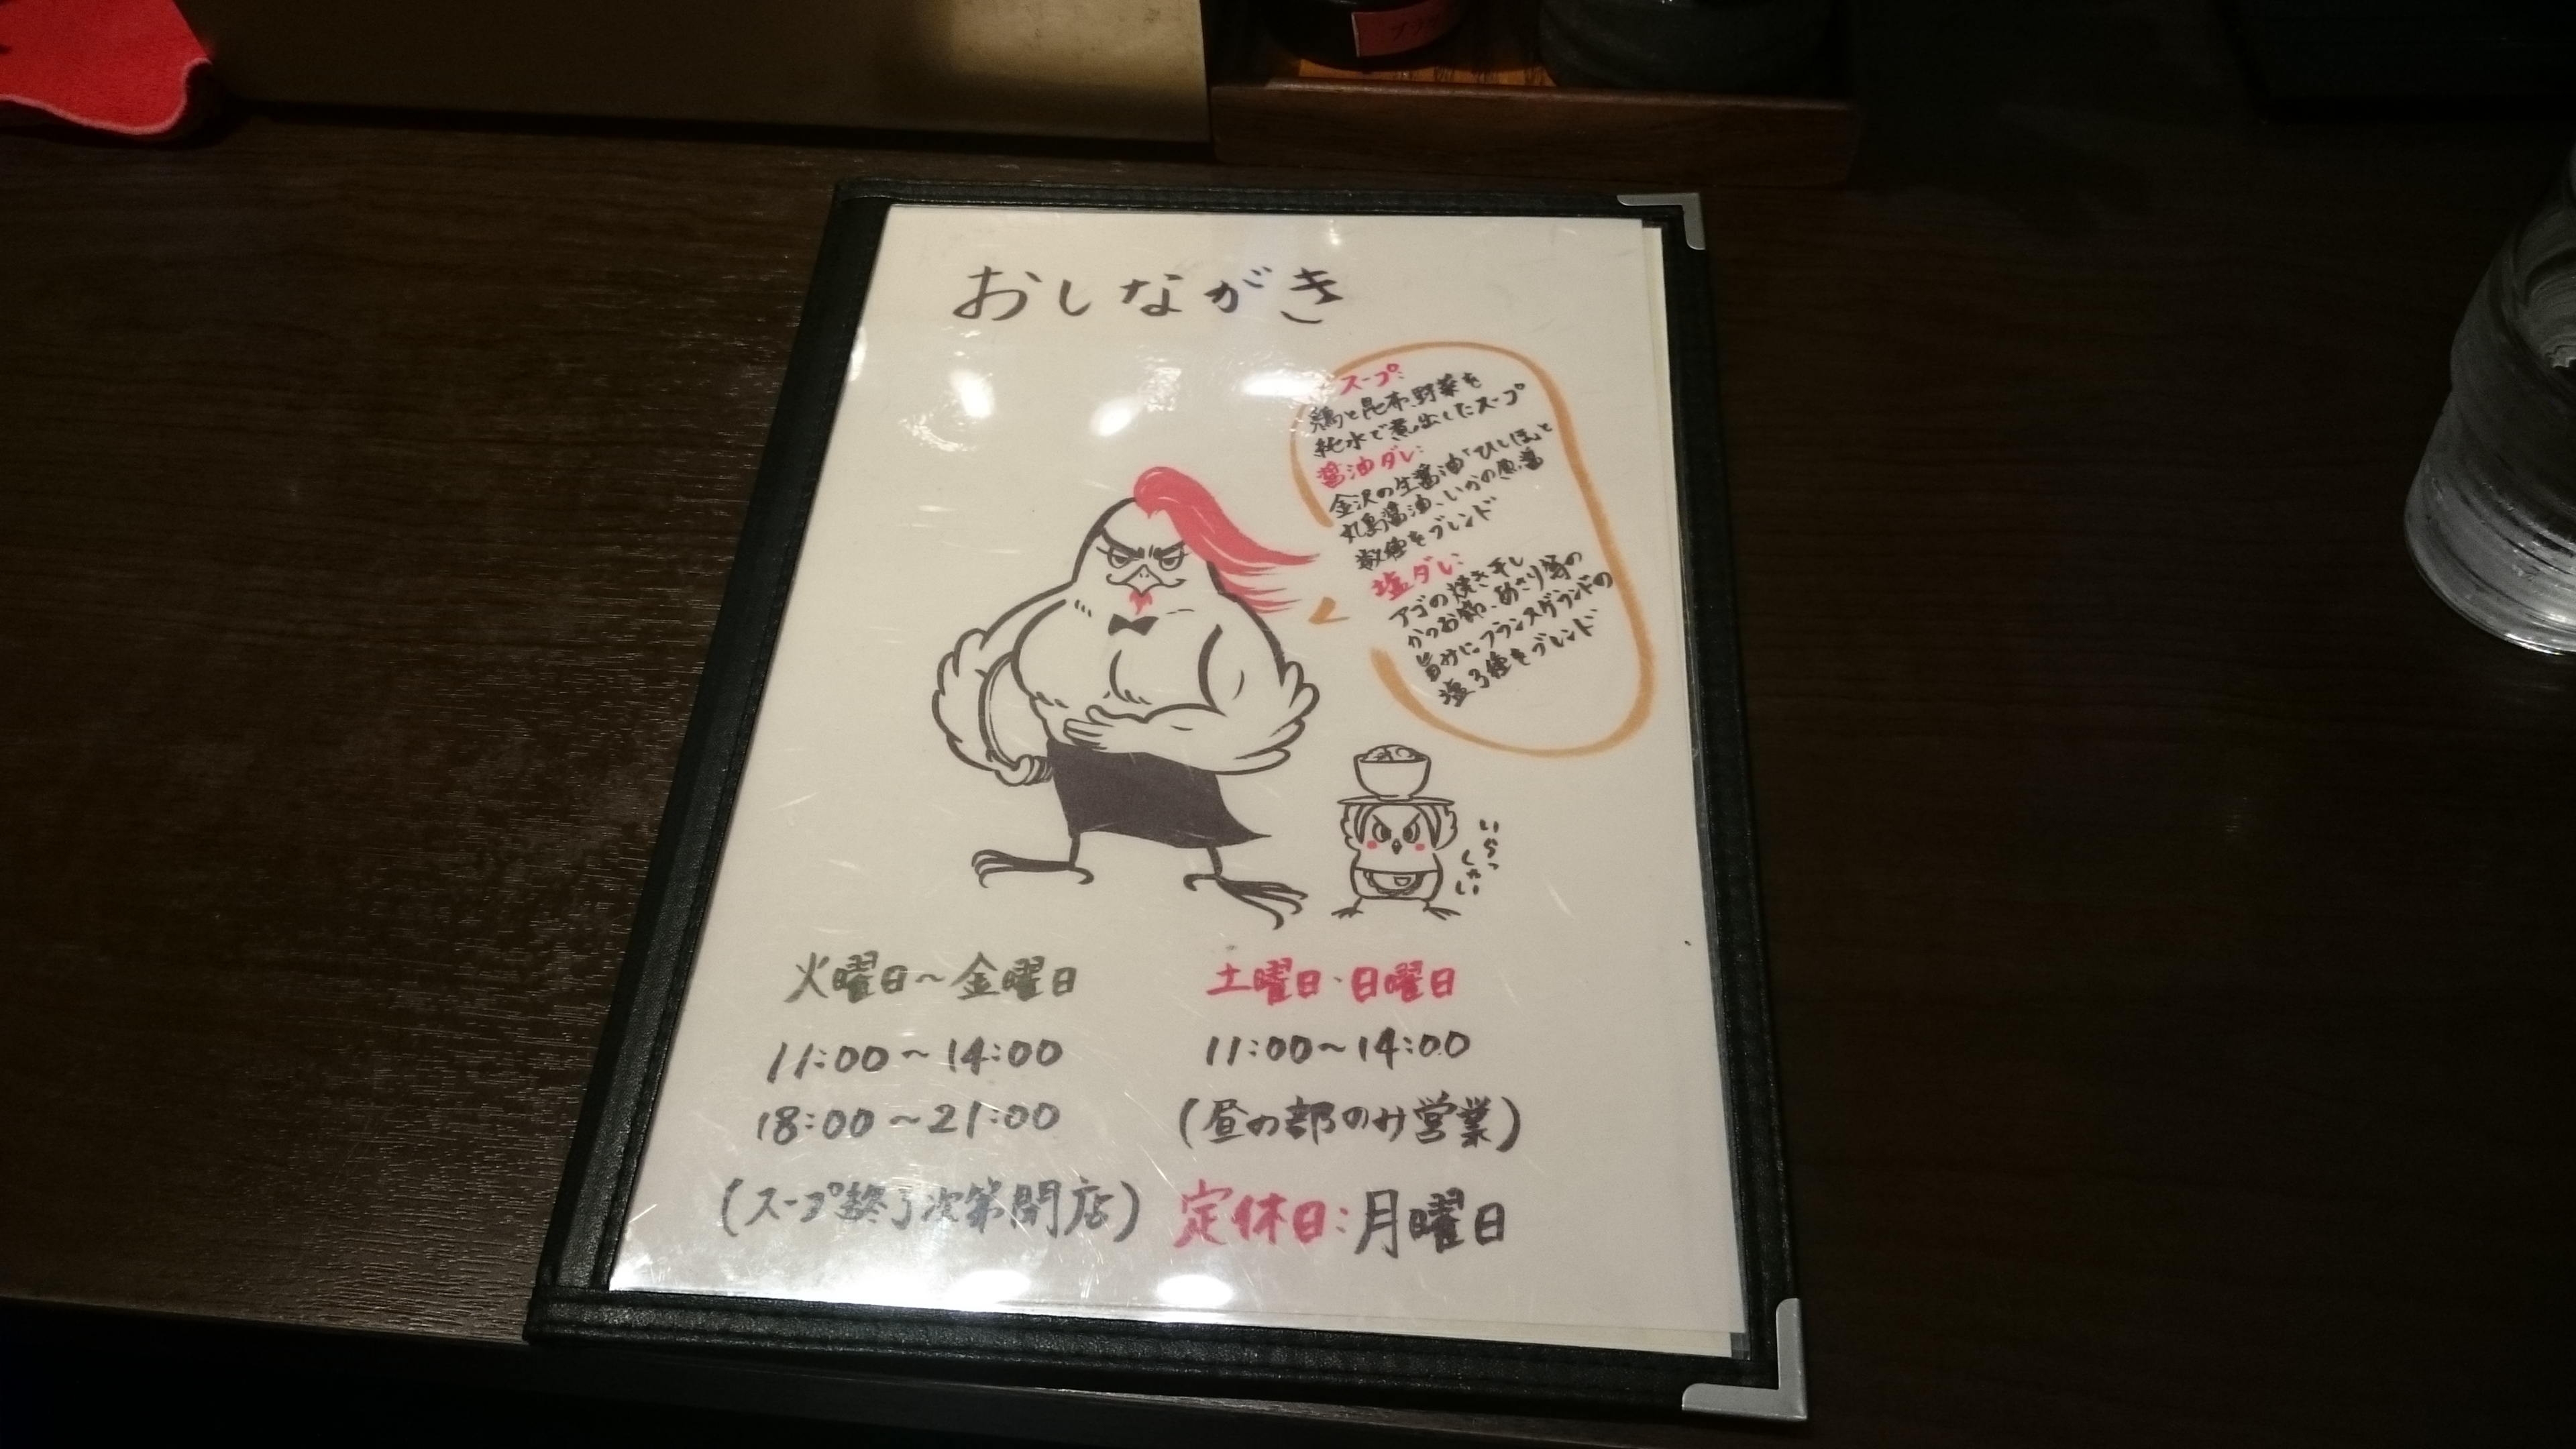 おしながき
スープ:
鶏と昆布、野菜を
純水で煮出したスープ
醤油ダレ:
金沢の生醤油「ひしほ」と
丸島醤油、いかの魚醤
数種をブレンド
塩ダレ:
アゴの焼き干し
かつお節、あさり等の
旨みにフランスゲランドの
塩3種をブレンド
いらっ
しゃい
火曜日〜金曜日
11:00〜14:00
18:00〜21:00
(スープ終了次第閉店)
土曜日・日曜日
11:00〜14:00
(昼の部のみ営業)
定休日:月曜日